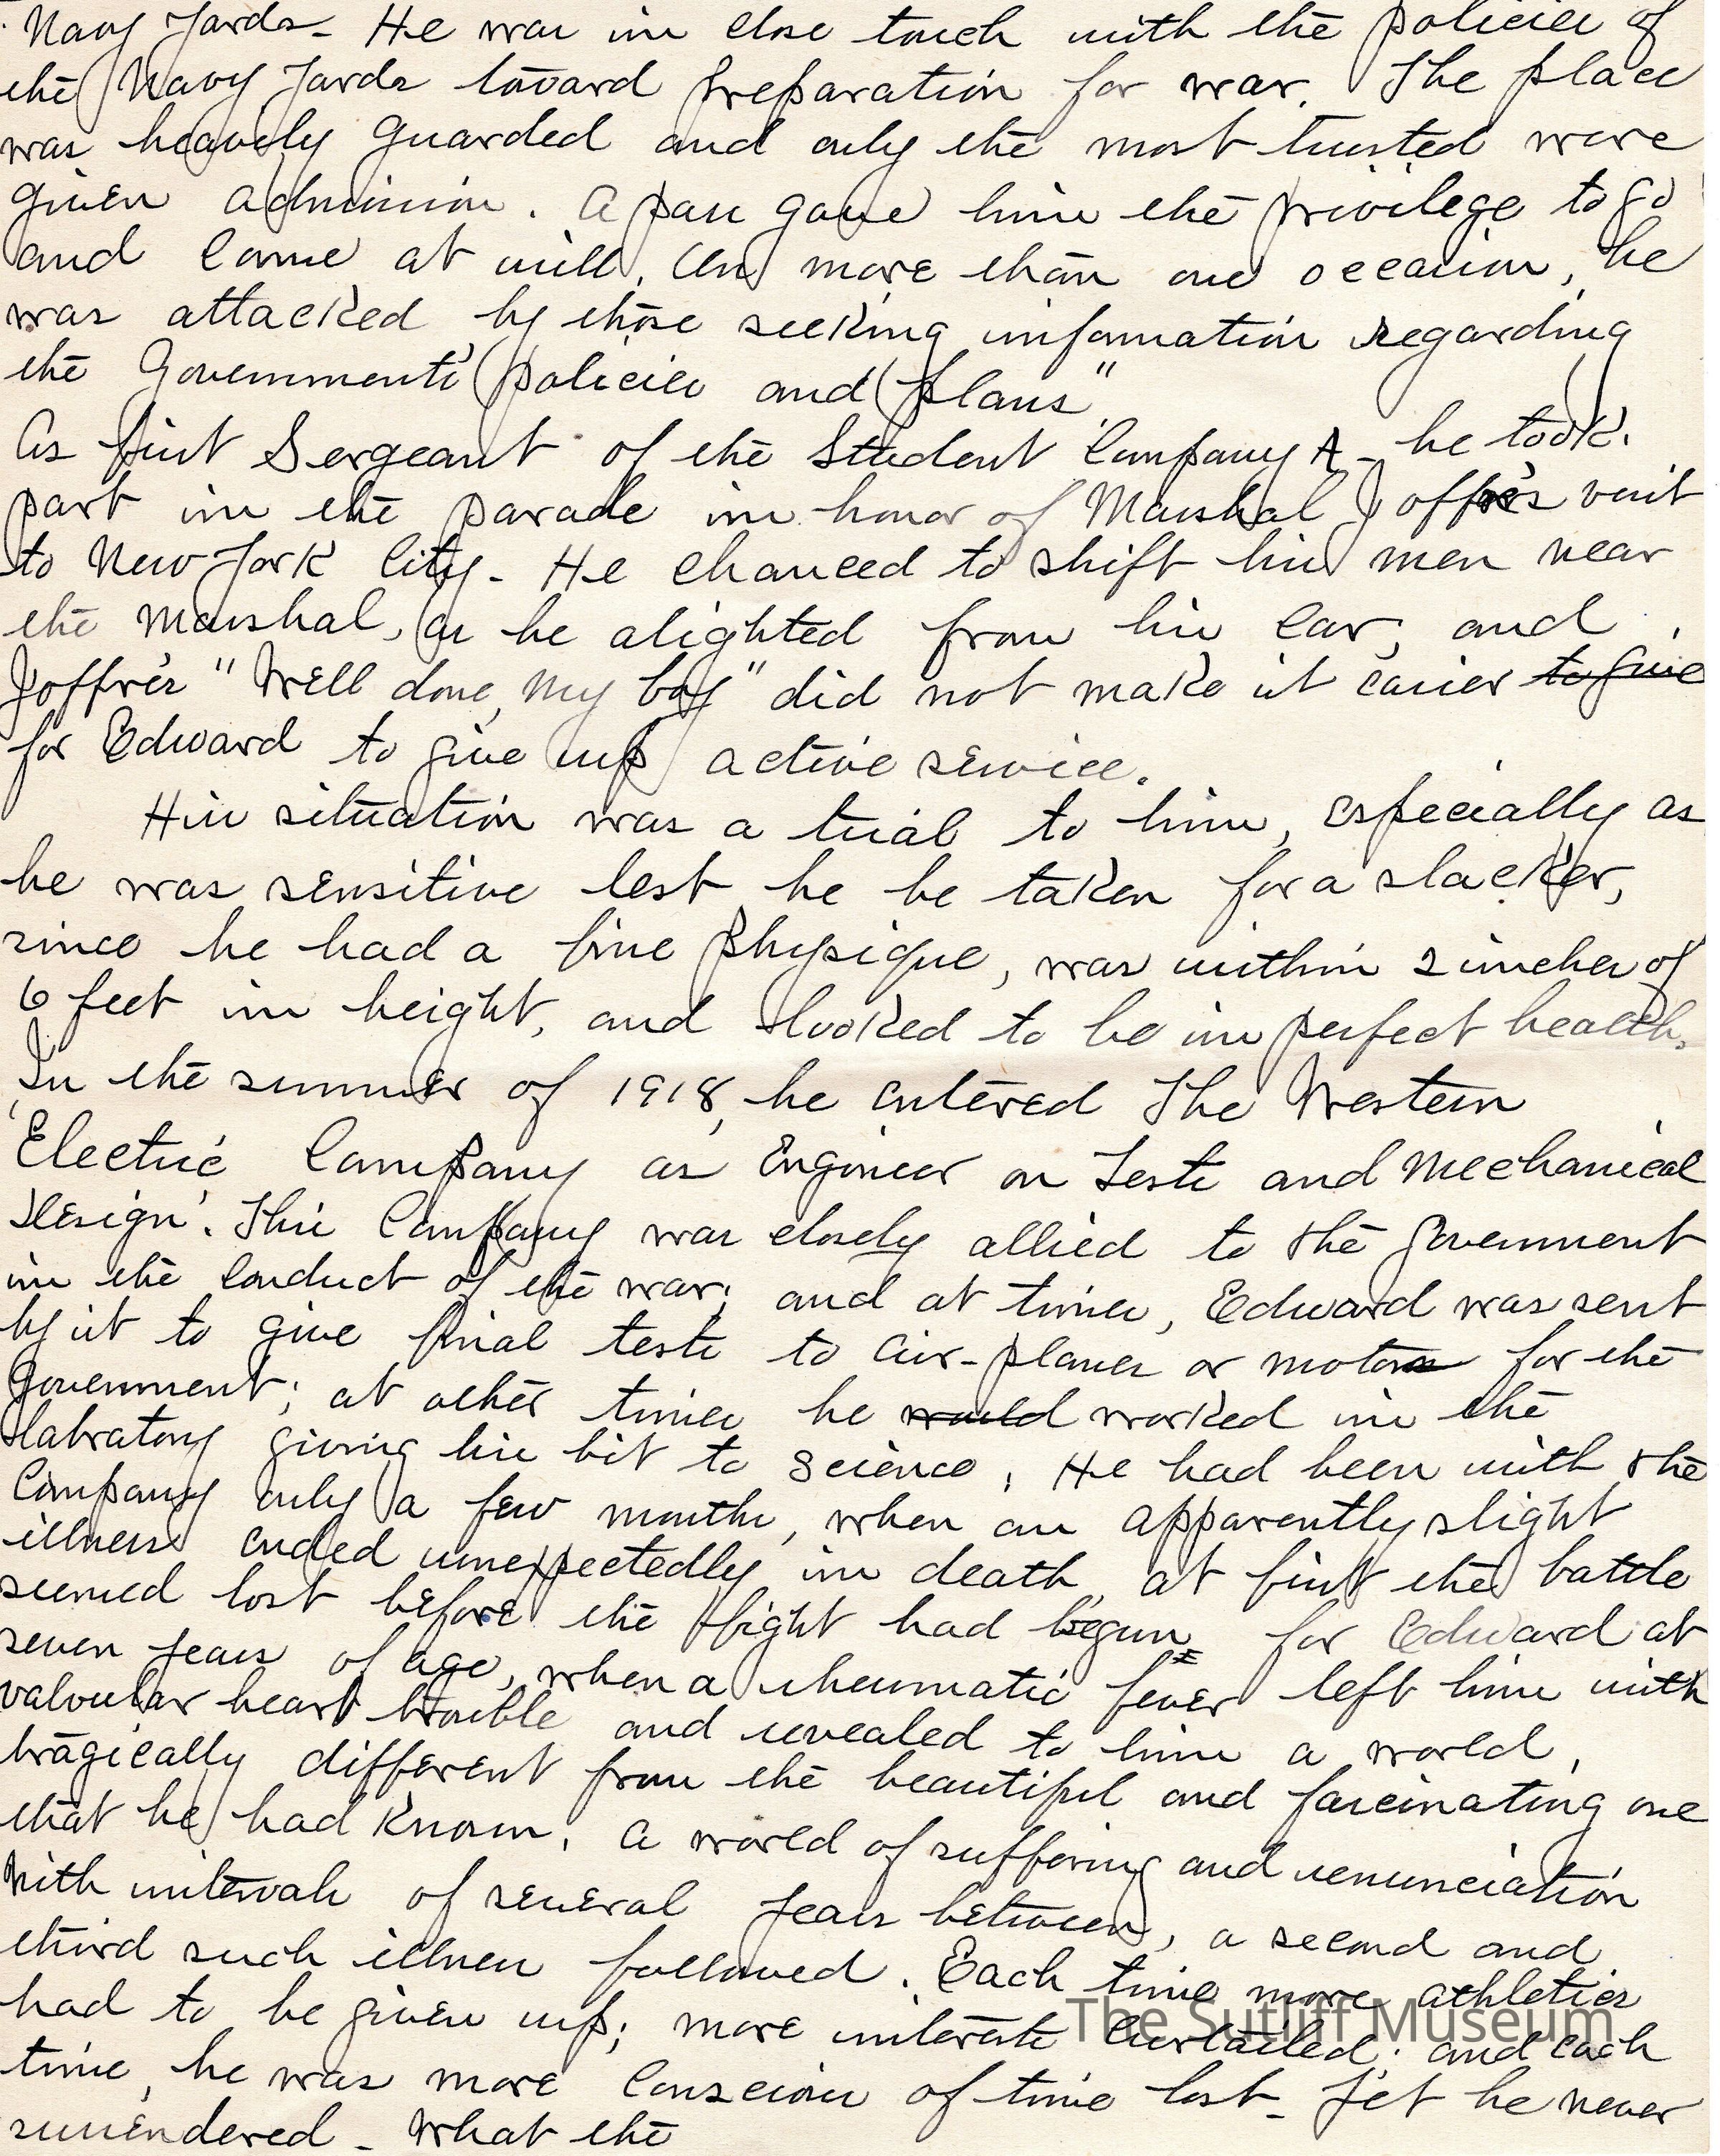 Navy Yards - He was in close touch with the policies of
the Navy Yards toward preparation for war. The place
was heavely guarded and only the most trusted were
given admission. A pass gave him the privilege to go
and come at will. On more than one occasion, he
was attacked by those seeking information regarding
the Government's policies and plans"
As first Sergeant of the Student Company A - he took
part in the parade in honor of Marshal Joffre's visit
to New York City - He chanced to shift his men near
the Marshal, as he alighted from his car, and
Joffre's "Well done, my boy" did not make it easier to give
for Edward to give up active service.
His situation was a trial to him, especially as
he was sensitive lest he be taken for a slacker,
since he had a fine physique, was within 2 inches of
6 feet in height, and looked to be in perfect health.
In the summer of 1918, he entered The Western
Electric Company as Engineer on Tests and Mechanical
Design. This Company was closely allied to the Government
in the conduct of the war; and at times, Edward was sent
by it to give final tests to air-planes or motors for the
Government; at other times he would worked in the
labratory giving his bit to science. He had been with the
Company only a few months, when an apparently slight
illness ended unexpectedly in death, at first the battle
seemed lost before the fight had begun, for Edward at
seven years of age, when a rheumatic fever left him with
valvular heart trouble and revealed to him a world,
tragically different from the beautiful and fascinating one
that he had known, a world of suffering and renunciation
With intervals of several years between, a second and
third such illness followed. Each time more athletics
had to be given up; more interests curtailed; and each
The Sutliff Museum
time, he was more conscious of time lost - Yet he never
surrendered - What the